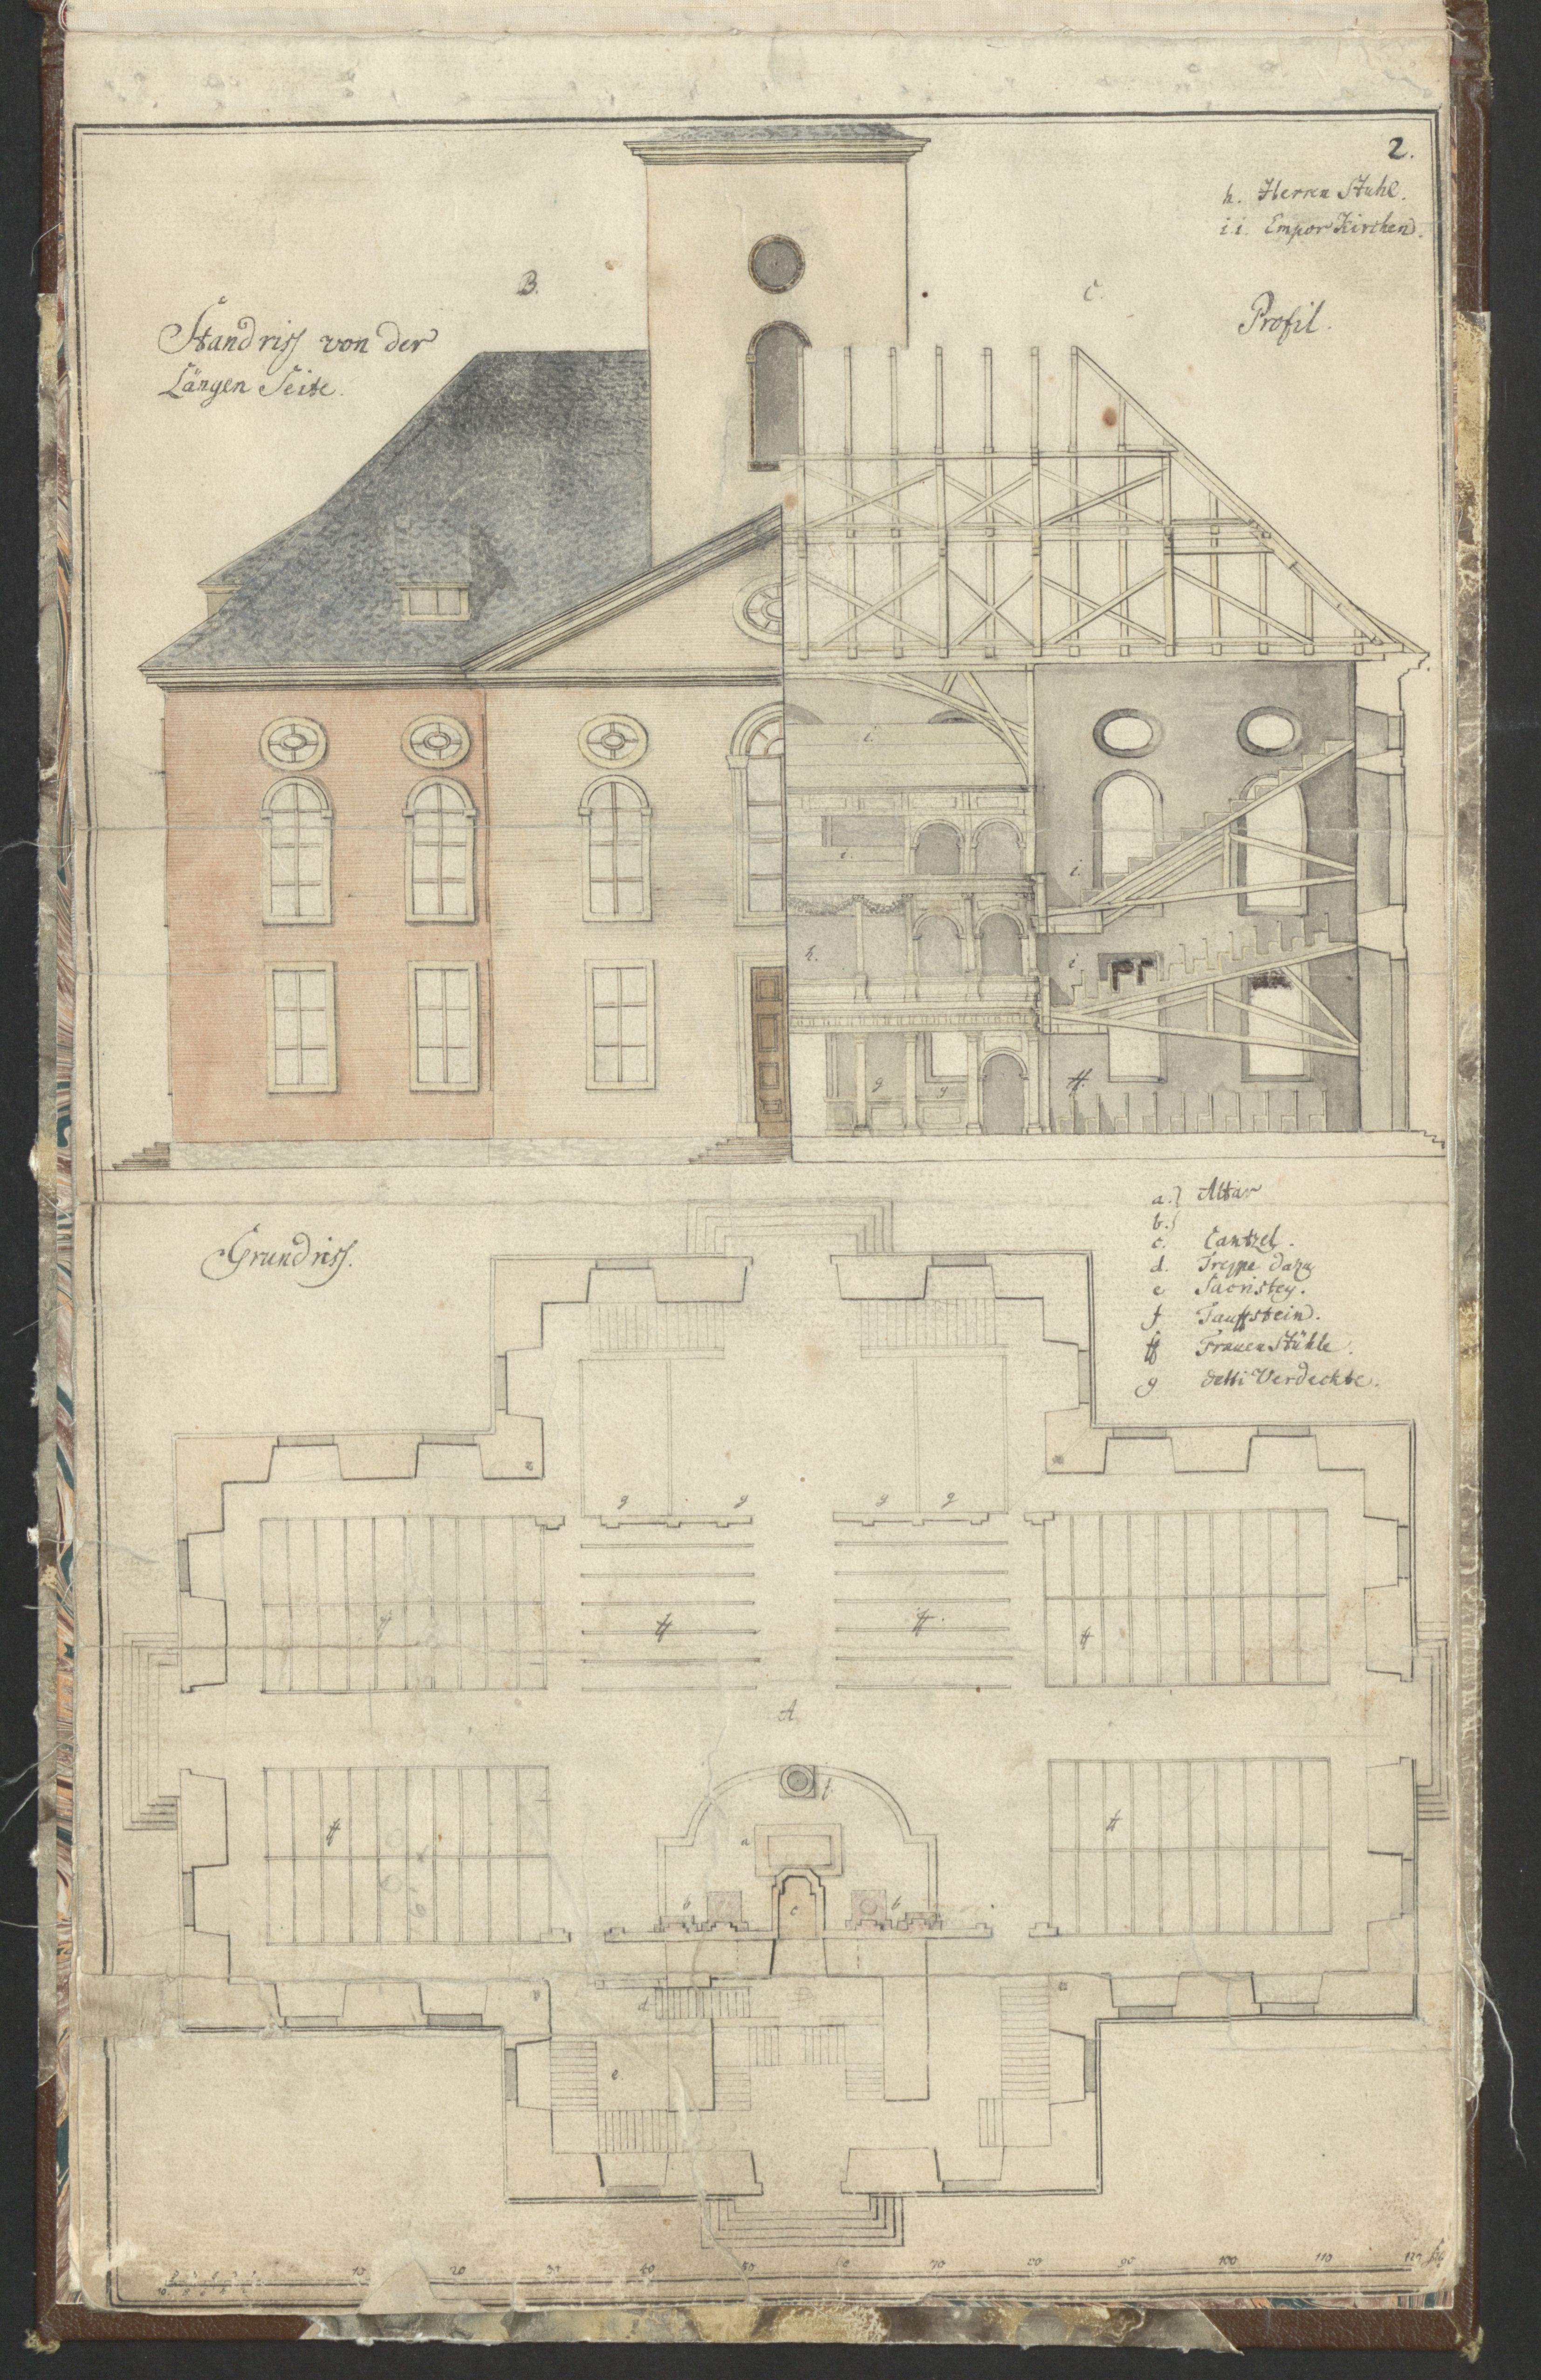 2.
h. Herren Stuhl.
i.i. Empor Kirchen.
B.
C.
Standriss von der
Längen Seite.
Profil.
i.
i.
i.
h.
i
g
g
ff.
Grundriss.
a.} Altar
b.}
c. Cantzel.
d. Treppe dazu
e Sacristey.
f Tauffstein.
ff Frauen Stühle.
g detti Verdeckte.
g g g g
ff ff. ff
A
ff f. ff
a
b c b
d
e
10 20 30 40 50 60 70 80 90 100 110 120